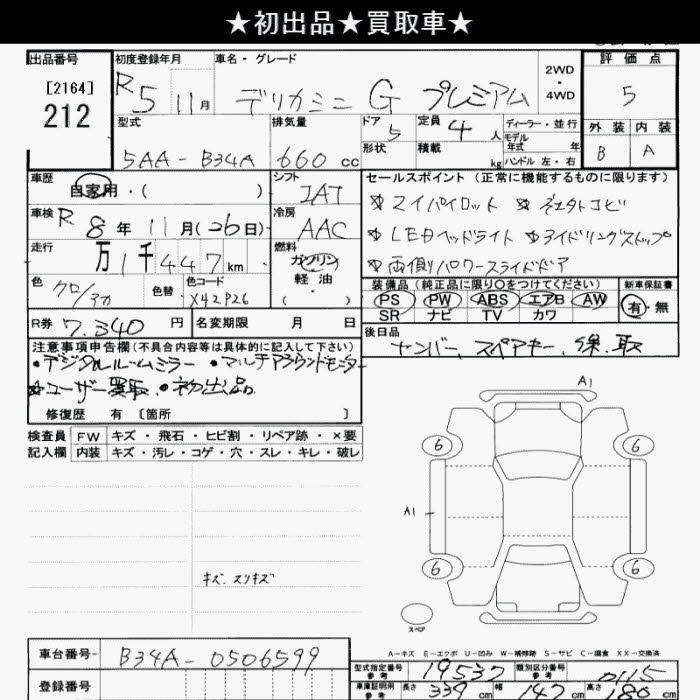 ★初出品★買取車★
出品番号 初度登録年月 車名・グレード 評価点
[2164]
212
R5 11月 デリカミニ G プレミアム 2WD・4WD 5
型式 排気量 ドア 5 定員 4 人 ディーラー・並行 外装 内装
5AA-B34A 660cc 形状 積載 kg モデル年式 年 ハンドル 左・右 B A
車歴 シフト セールスポイント (正常に機能するものに限ります)
自家用・( ) IAT
☆マイパイロット ☆
車検 R8年11月(26日) 冷房 AAC
☆LEDヘッドライト ☆アイドリングストップ
走行 万1千447km 燃料 ガソリン 軽油 ・( )
☆両側パワースライドドア
色 クロ/アカ 色替 色コード X42P26
装備品 (純正品に限り○をつけてください) 新車保証書
PS PW ABS エアB AW 有・無
SR ナビ TV カワ
R券 7,340円 名変期限 月 日
後日品 ナンバー、スペアキー、保、取
注意事項申告欄(不具合内容等は具体的に記入して下さい)
・デジタルルームミラー ・マルチアラウンドモニター
★ユーザー買取 ・初出品
修復歴 有 〔箇所 〕
検査員記入欄 FW キズ・飛石・ヒビ割・リペア跡・×要
内装 キズ・汚レ・コゲ・穴・スレ・キレ・破レ
A1
6 6
A1
6 6
キズ、スリキズ
スペア
A-キズ E-エクボ U-凹み W-補修跡 S-サビ C-腐食 XX-交換済
車台番号 B34A-0506599
登録番号
型式指定番号 参考 19537 類別区分番号 参考 0115
車庫証明用 参考 長さ 339cm 幅 147cm 高さ 180cm